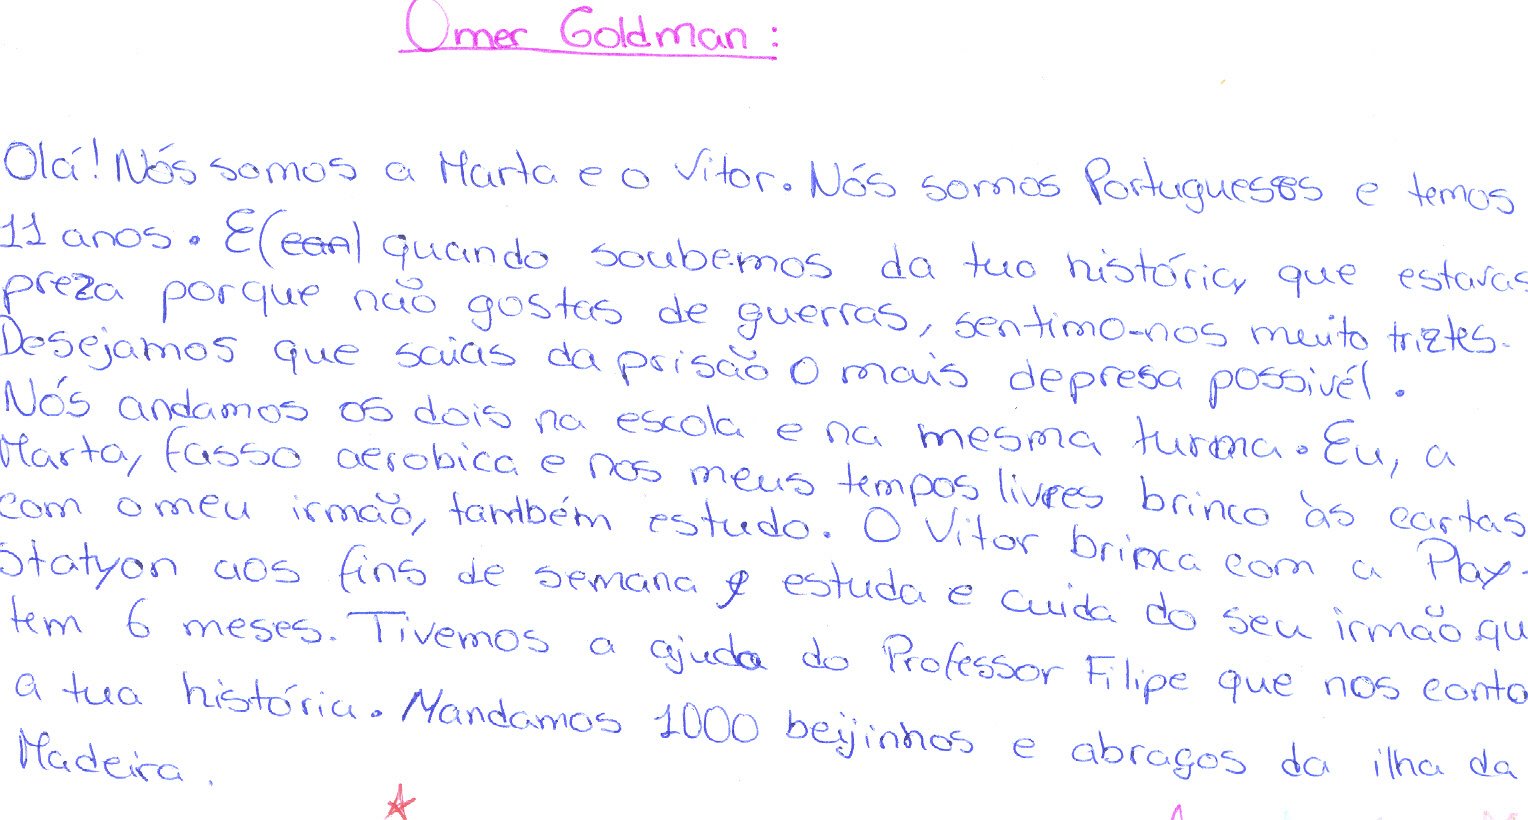 Omer Goldman:
Olá! Nós somos a Marta e o Vitor. Nós somos Portugueses e temos
11 anos. E (can) quando soubemos da tua história, que estavas
preza porque não gostas de guerras, sentimo-nos muito triztes.
Desejamos que saias da prisão o mais depresa possivél.
Nós andamos os dois na escola e na mesma turma. Eu, a
Marta, fasso aerobica e nos meus tempos livres brinco às cartas
com o meu irmão, também estudo. O Vitor brinca com a Play-
Statyon aos fins de semana e estuda e cuida do seu irmão qu
tem 6 meses. Tivemos a ajuda do Professor Filipe que nos conto
a tua história. Mandamos 1000 beijinhos e abraços da ilha da
Madeira.